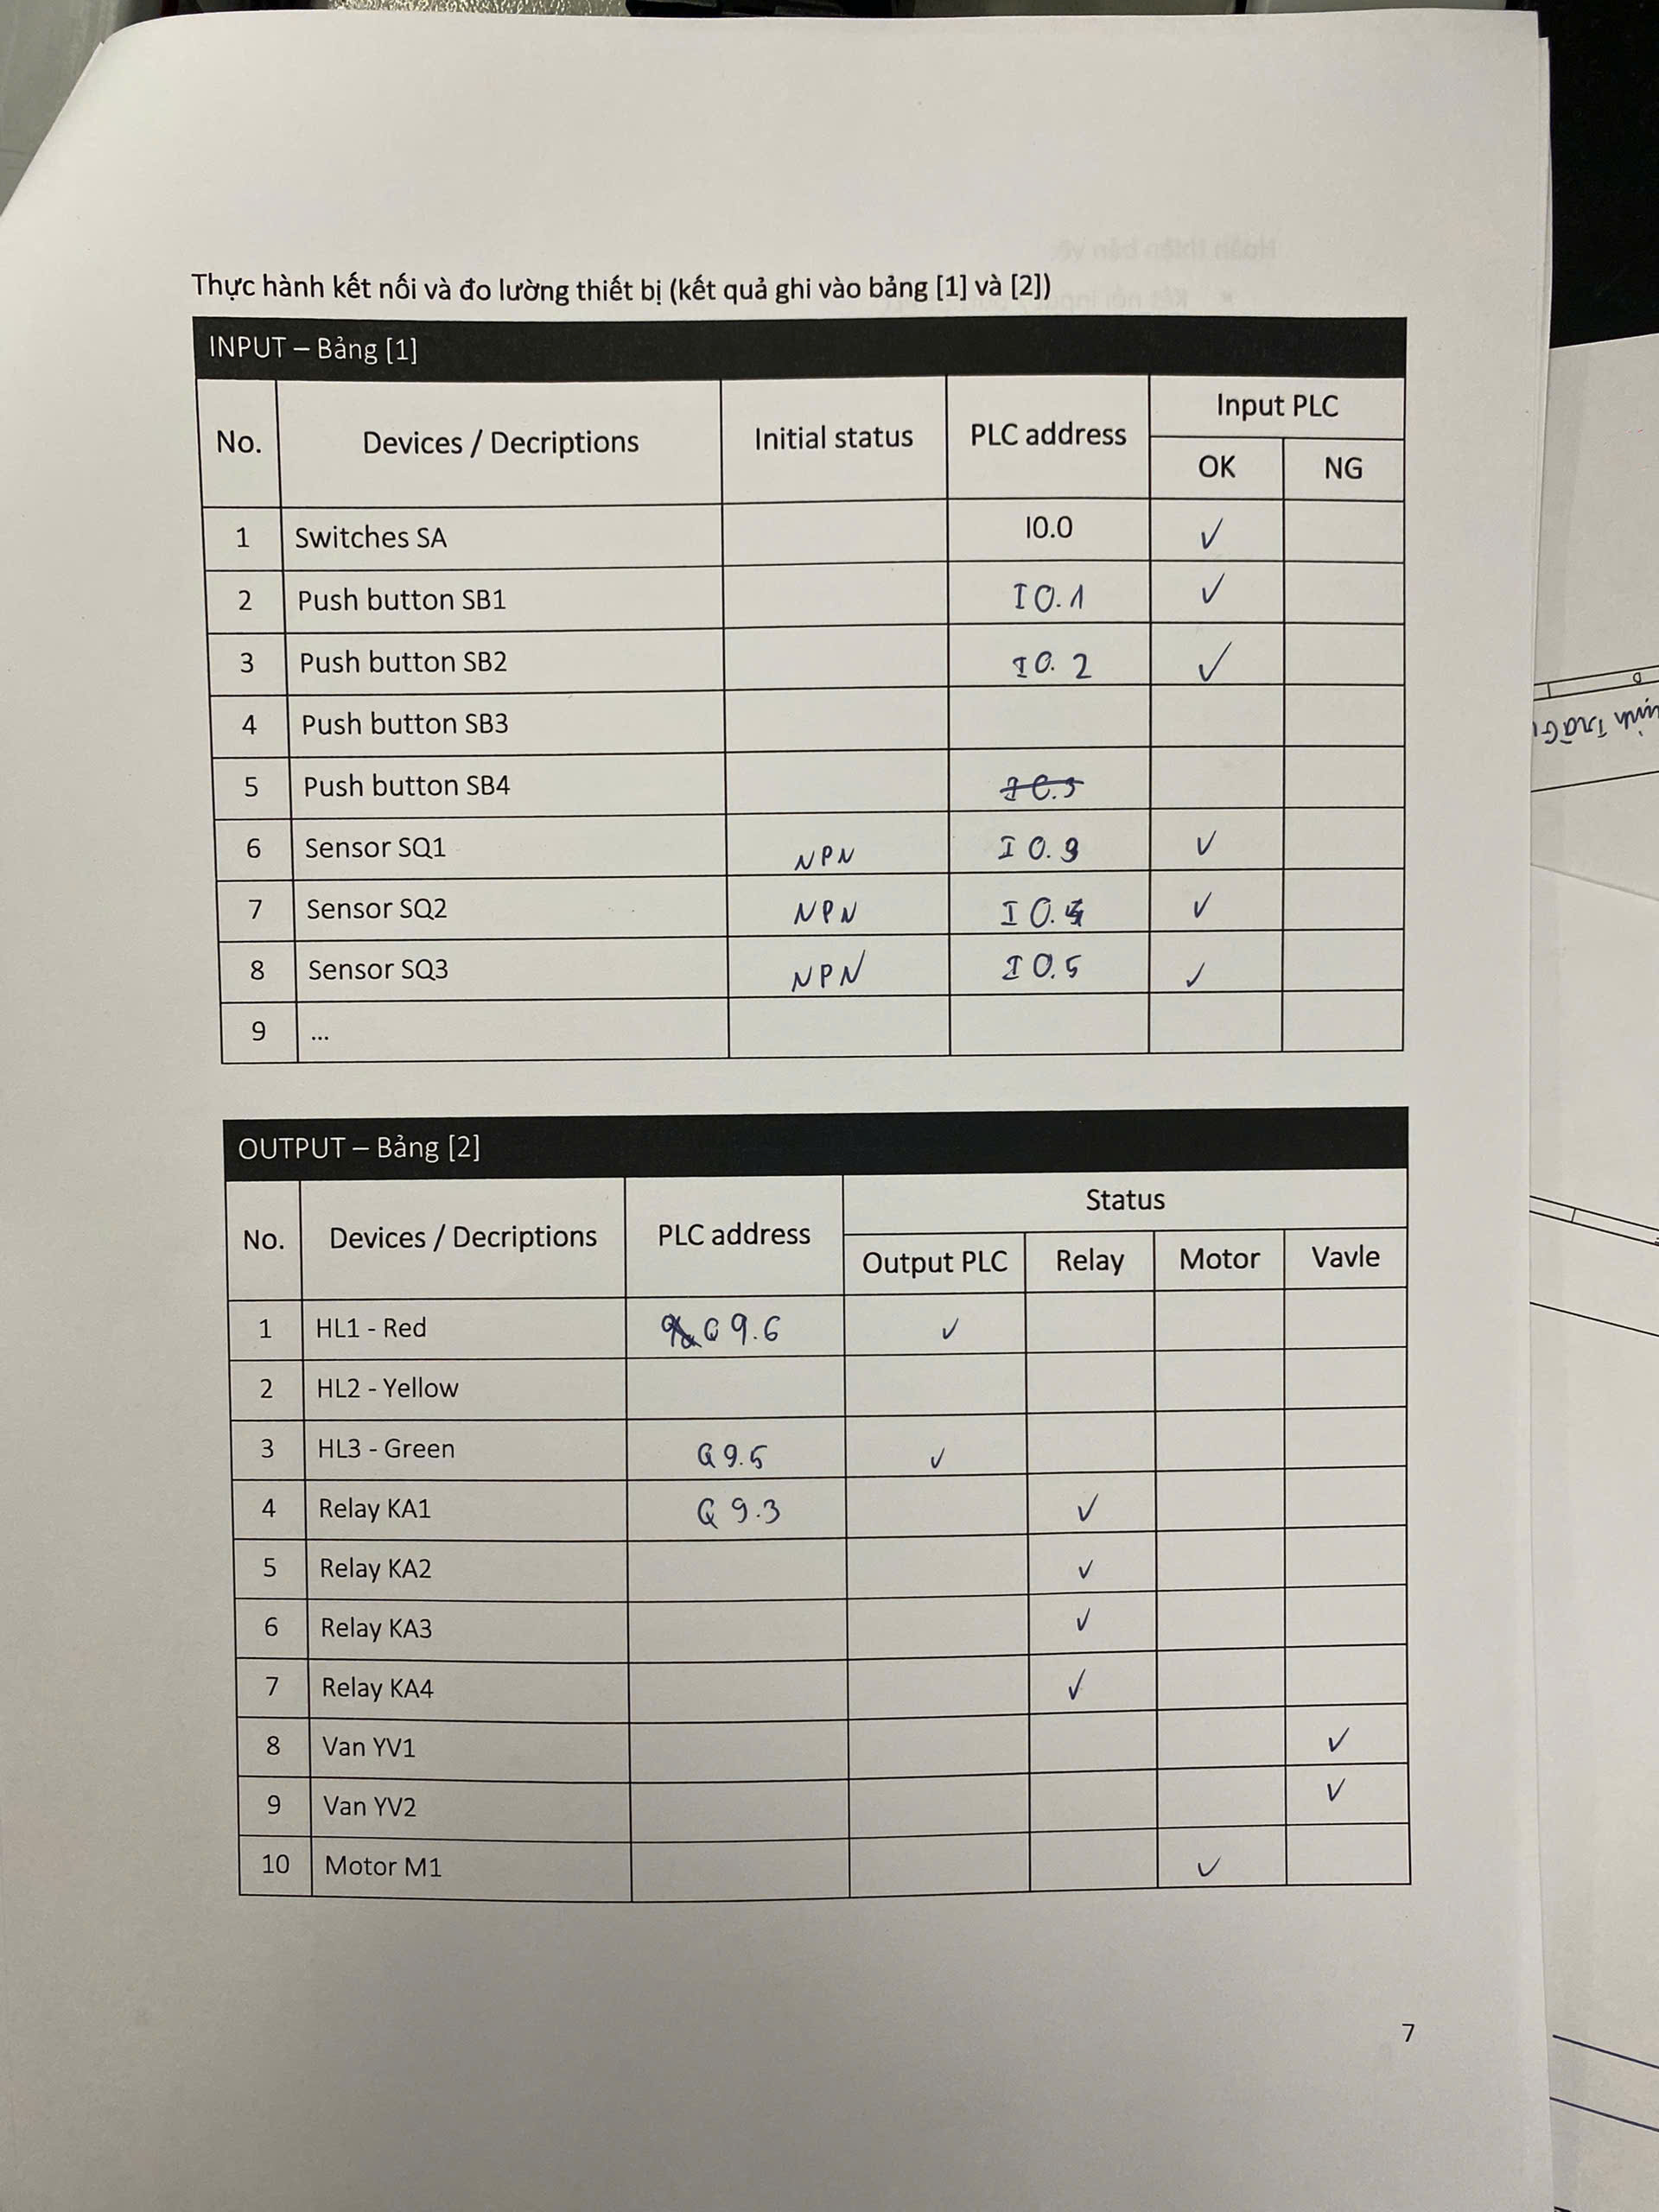 Thực hành kết nối và đo lường thiết bị (kết quả ghi vào bảng [1] và [2])
INPUT – Bảng [1]
No. Devices / Decriptions Initial status PLC address Input PLC
OK NG
1 Switches SA I0.0 ✓
2 Push button SB1 I0.1 ✓
3 Push button SB2 I0.2 ✓
4 Push button SB3
5 Push button SB4
6 Sensor SQ1 NPN ✓
7 Sensor SQ2 NPN I0.4 ✓
8 Sensor SQ3 NPN I0.5 ✓
9 ...
OUTPUT – Bảng [2]
No. Devices / Decriptions PLC address Status
Output PLC Relay Motor Vavle
1 HL1 - Red Q9.6 ✓
2 HL2 - Yellow
3 HL3 - Green Q9.5 ✓
4 Relay KA1 Q9.3 ✓
5 Relay KA2 ✓
6 Relay KA3 ✓
7 Relay KA4 ✓
8 Van YV1 ✓
9 Van YV2 ✓
10 Motor M1 ✓
7